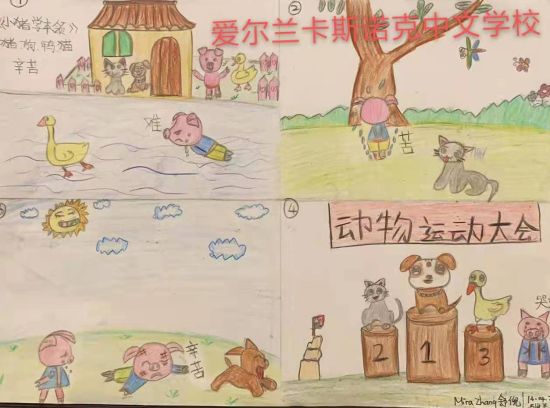 ①
《小猪学本领》
猪狗鸭猫
辛苦
②
爱尔兰卡斯诺克中文学校
难
苦
③
辛苦
④
动物运动大会
2
1
3
哭
Mira Zhang